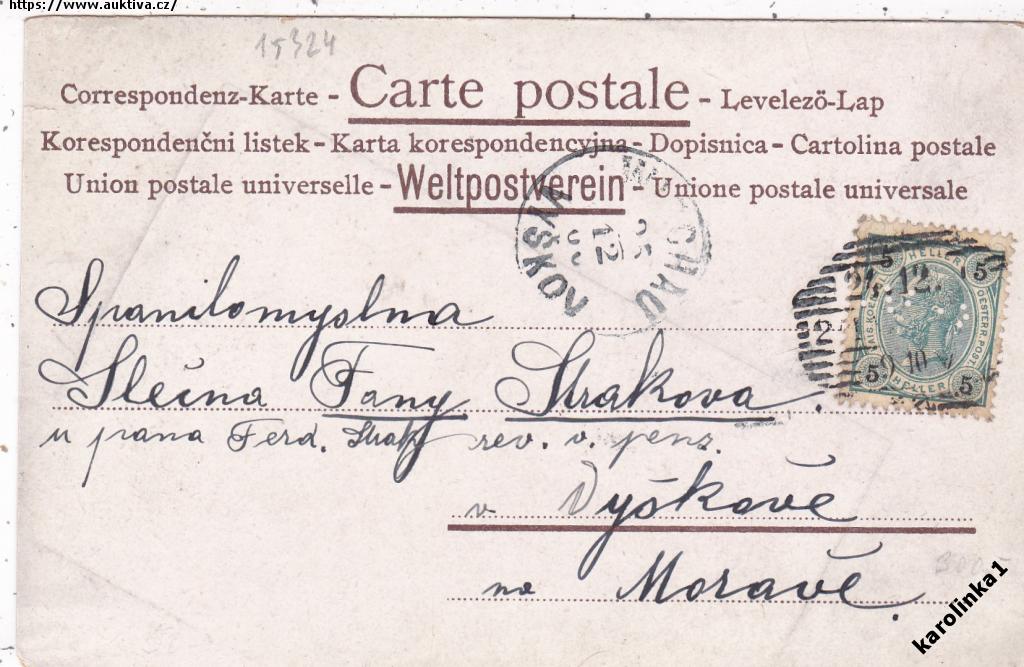 https://www.auktiva.cz/
15324
Correspondenz-Karte - Carte postale - Levelezö-Lap
Korespondenčni listek - Karta korespondencyjna - Dopisnica - Cartolina postale
Union postale universelle - Weltpostverein - Unione postale universale
WISCHAU
VYŠKOV
12
24.12.
5 HELLER 5
5 HELLER 5
Spanilomyslna
Slečna Fany Strakova.
u pana Ferd. Straky rev. v. penz.
v Vyškově
na Moravě.
karolinka1